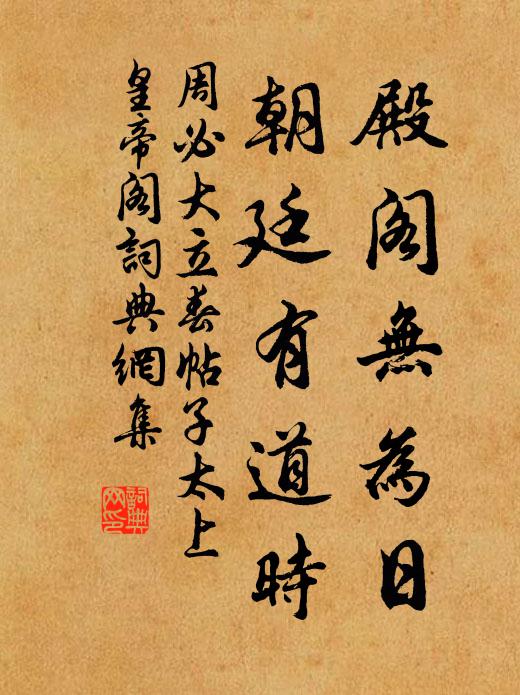 殿閣無為日
朝廷有道時
周必大立春帖子太上
皇帝閣詞典網集
詞典
网印